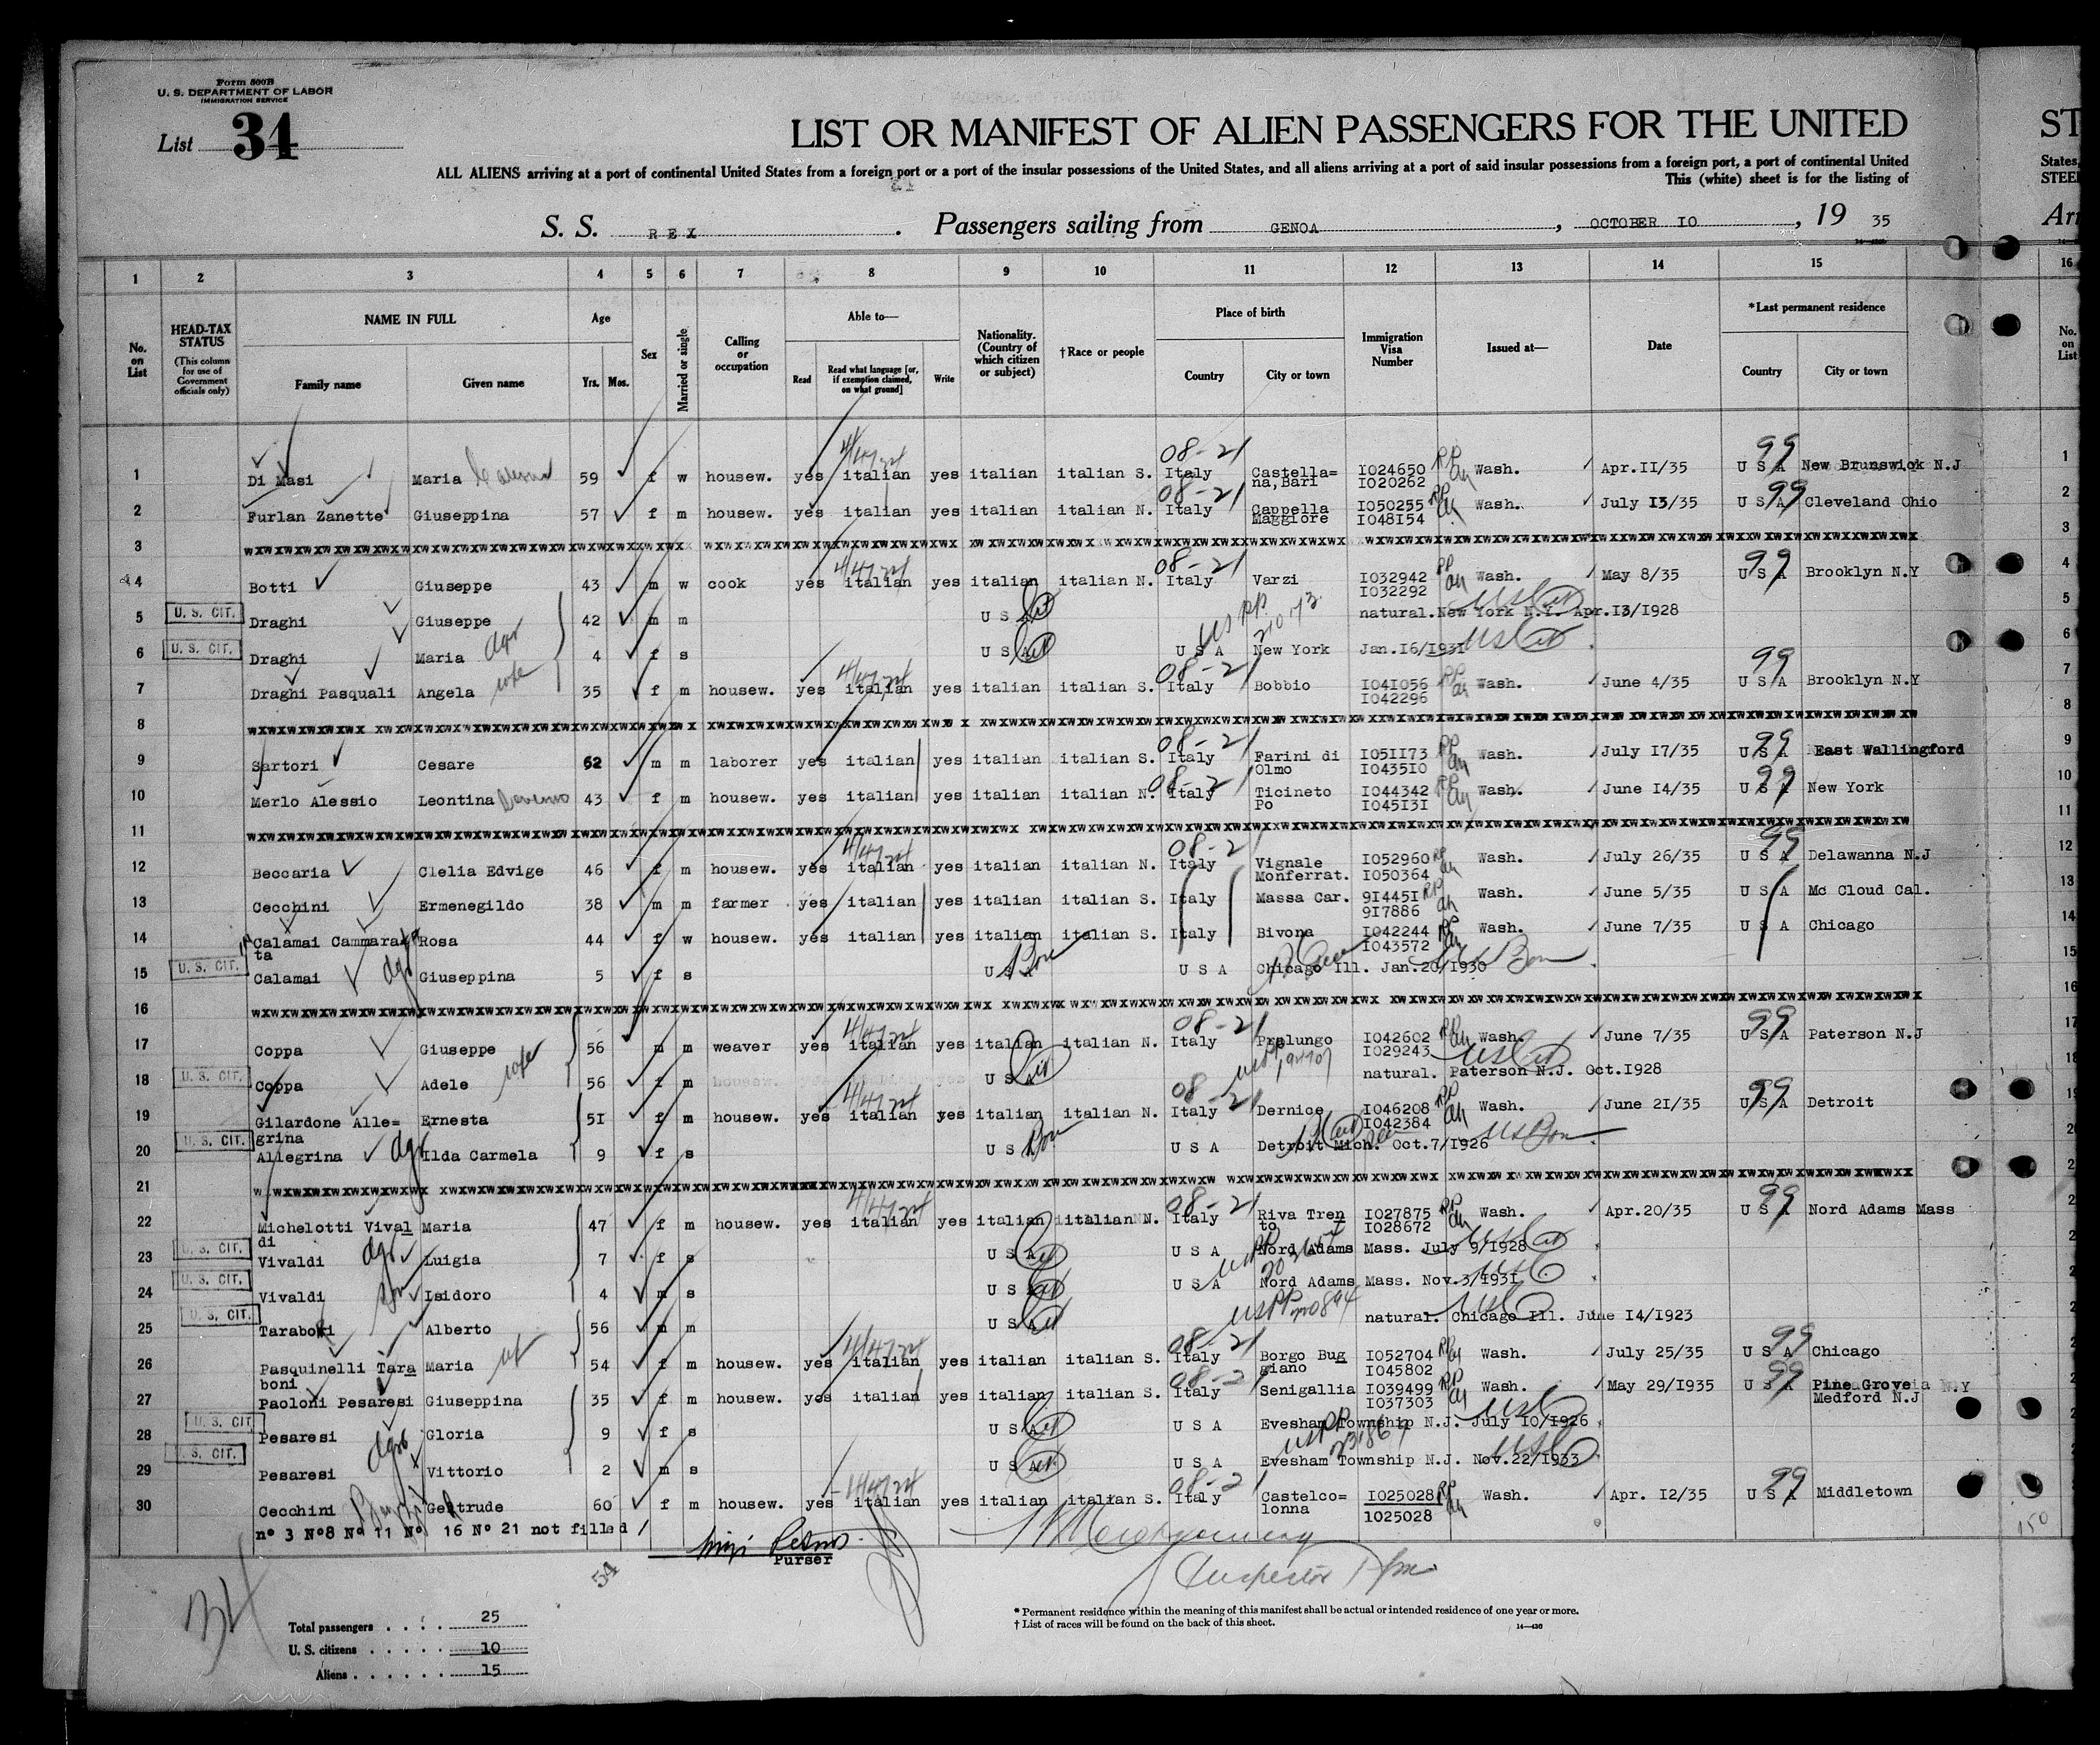 Form 500B
U. S. DEPARTMENT OF LABOR
IMMIGRATION SERVICE
List 34
LIST OR MANIFEST OF ALIEN PASSENGERS FOR THE UNITED ST
ALL ALIENS arriving at a port of continental United States from a foreign port or a port of the insular possessions of the United States, and all aliens arriving at a port of said insular possessions from a foreign port, a port of continental United States,
This (white) sheet is for the listing of STEE
S. S. REX. Passengers sailing from GENOA, OCTOBER IO, 19 35
1 2 3 4 5 6 7 8 9 10 11 12 13 14 15 16
No. on List
HEAD-TAX STATUS
(This column for use of Government officials only)
NAME IN FULL
Family name Given name
Age
Yrs. Mos.
Sex
Married or single
Calling or occupation
Able to—
Read
Read what language [or, if exemption claimed, on what ground]
Write
Nationality. (Country of which citizen or subject)
†Race or people
Place of birth
Country City or town
Immigration Visa Number
Issued at—
Date
*Last permanent residence
Country City or town
No. on List
1 Di Masi Maria 59 f w housew. yes italian yes italian italian S. Italy Castella=na,Bari IO24650 IO20262 Wash. Apr.II/35 U S A New Brunswick N.J 1
2 Furlan Zanette Giuseppina 57 f m housew. yes italian yes italian italian N. Italy Cappella Maggiore IO50255 IO48I54 Wash. July I3/35 U S A Cleveland Ohio 2
3
4 Botti Giuseppe 43 m w cook yes italian yes italian italian N. Italy Varzi IO32942 IO32292 Wash. May 8/35 U S A Brooklyn N.Y 4
5 U. S. CIT. Draghi Giuseppe 42 m m U S A natural.New York N.Y. Apr.I3/I928 5
6 U. S. CIT. Draghi Maria 4 f s U S A U S A New York Jan.I6/I93I 6
7 Draghi Pasquali Angela 35 f m housew. yes italian yes italian italian S. Italy Bobbio IO4I056 IO42296 Wash. June 4/35 U S A Brooklyn N.Y 7
8
9 Sartori Cesare 52 m m laborer yes italian yes italian italian S. Italy Farini di Olmo IO5II73 IO435IO Wash. July I7/35 U S A East Wallingford 9
10 Merlo Alessio Leontina 43 f m housew. yes italian yes italian italian N. Italy Ticineto Po IO44342 IO45I3I Wash. June I4/35 U S A New York 10
11
12 Beccaria Clelia Edvige 46 f m housew. yes italian yes italian italian N. Italy Vignale Monferrat. IO52960 IO50364 Wash. July 26/35 U S A Delawanna N.J 12
13 Cecchini Ermenegildo 38 m m farmer yes italian yes italian italian S. Italy Massa Car. 9I445I 9I7886 Wash. June 5/35 U S A Mc Cloud Cal. 13
14 Calamai Cammarata Rosa 44 f w housew. yes italian yes italian italian S. Italy Bivona IO42244 IO43572 Wash. June 7/35 U S A Chicago 14
15 U. S. CIT. Calamai Giuseppina 5 f s U S A U S A Chicago Ill. Jan.20/I930 15
16
17 Coppa Giuseppe 56 m m weaver yes italian yes italian italian N. Italy Pralungo IO42602 IO29243 Wash. June 7/35 U S A Paterson N.J 17
18 U. S. CIT. Coppa Adele 56 f m U S A natural. Paterson N.J. Oct.I928 18
19 Gilardone Alle=grina Ernesta 5I f m housew. yes italian yes italian italian N. Italy Dernice IO46208 IO42384 Wash. June 2I/35 U S A Detroit 19
20 U. S. CIT. Allegrina Ilda Carmela 9 f s U S A U S A Detroit Mich. Oct.7/I926
21
22 Michelotti Vivaldi Maria 47 f m housew. yes italian yes italian italian N. Italy Riva Trento IO27875 IO28672 Wash. Apr.20/35 U S A Nord Adams Mass
23 U. S. CIT. Vivaldi Luigia 7 f s U S A U S A Nord Adams Mass. July 9/I928
24 U. S. CIT. Vivaldi Isidoro 4 m s U S A U S A Nord Adams Mass. Nov.3/I93I
25 U. S. CIT. Taraboni Alberto 56 m m U S A natural. Chicago Ill. June I4/I923
26 Pasquinelli Taraboni Maria 54 f m housew. yes italian yes italian italian S. Italy Borgo Buggiano IO52704 IO45802 Wash. July 25/35 U S A Chicago
27 Paoloni Pesaresi Giuseppina 35 f m housew. yes italian yes italian italian S. Italy Senigallia IO39499 IO37303 Wash. May 29/I935 U S A Pine Grove Medford N.J
28 U. S. CIT. Pesaresi Gloria 9 f s U S A U S A Evesham Township N.J. July IO/I926
29 U. S. CIT. Pesaresi Vittorio 2 m s U S A U S A Evesham Township N.J. Nov.22/I933
30 Cecchini Gertrude 60 f m housew. yes italian yes italian italian S. Italy Castelco=lonna IO25028 IO25028 Wash. Apr. I2/35 U S A Middletown
n° 3 N°8 N° 11 N° 16 N° 21 not filled /
Purser
54
34
150
Total passengers 25
U. S. citizens 10
Aliens 15
* Permanent residence within the meaning of this manifest shall be actual or intended residence of one year or more.
† List of races will be found on the back of this sheet.
14—430